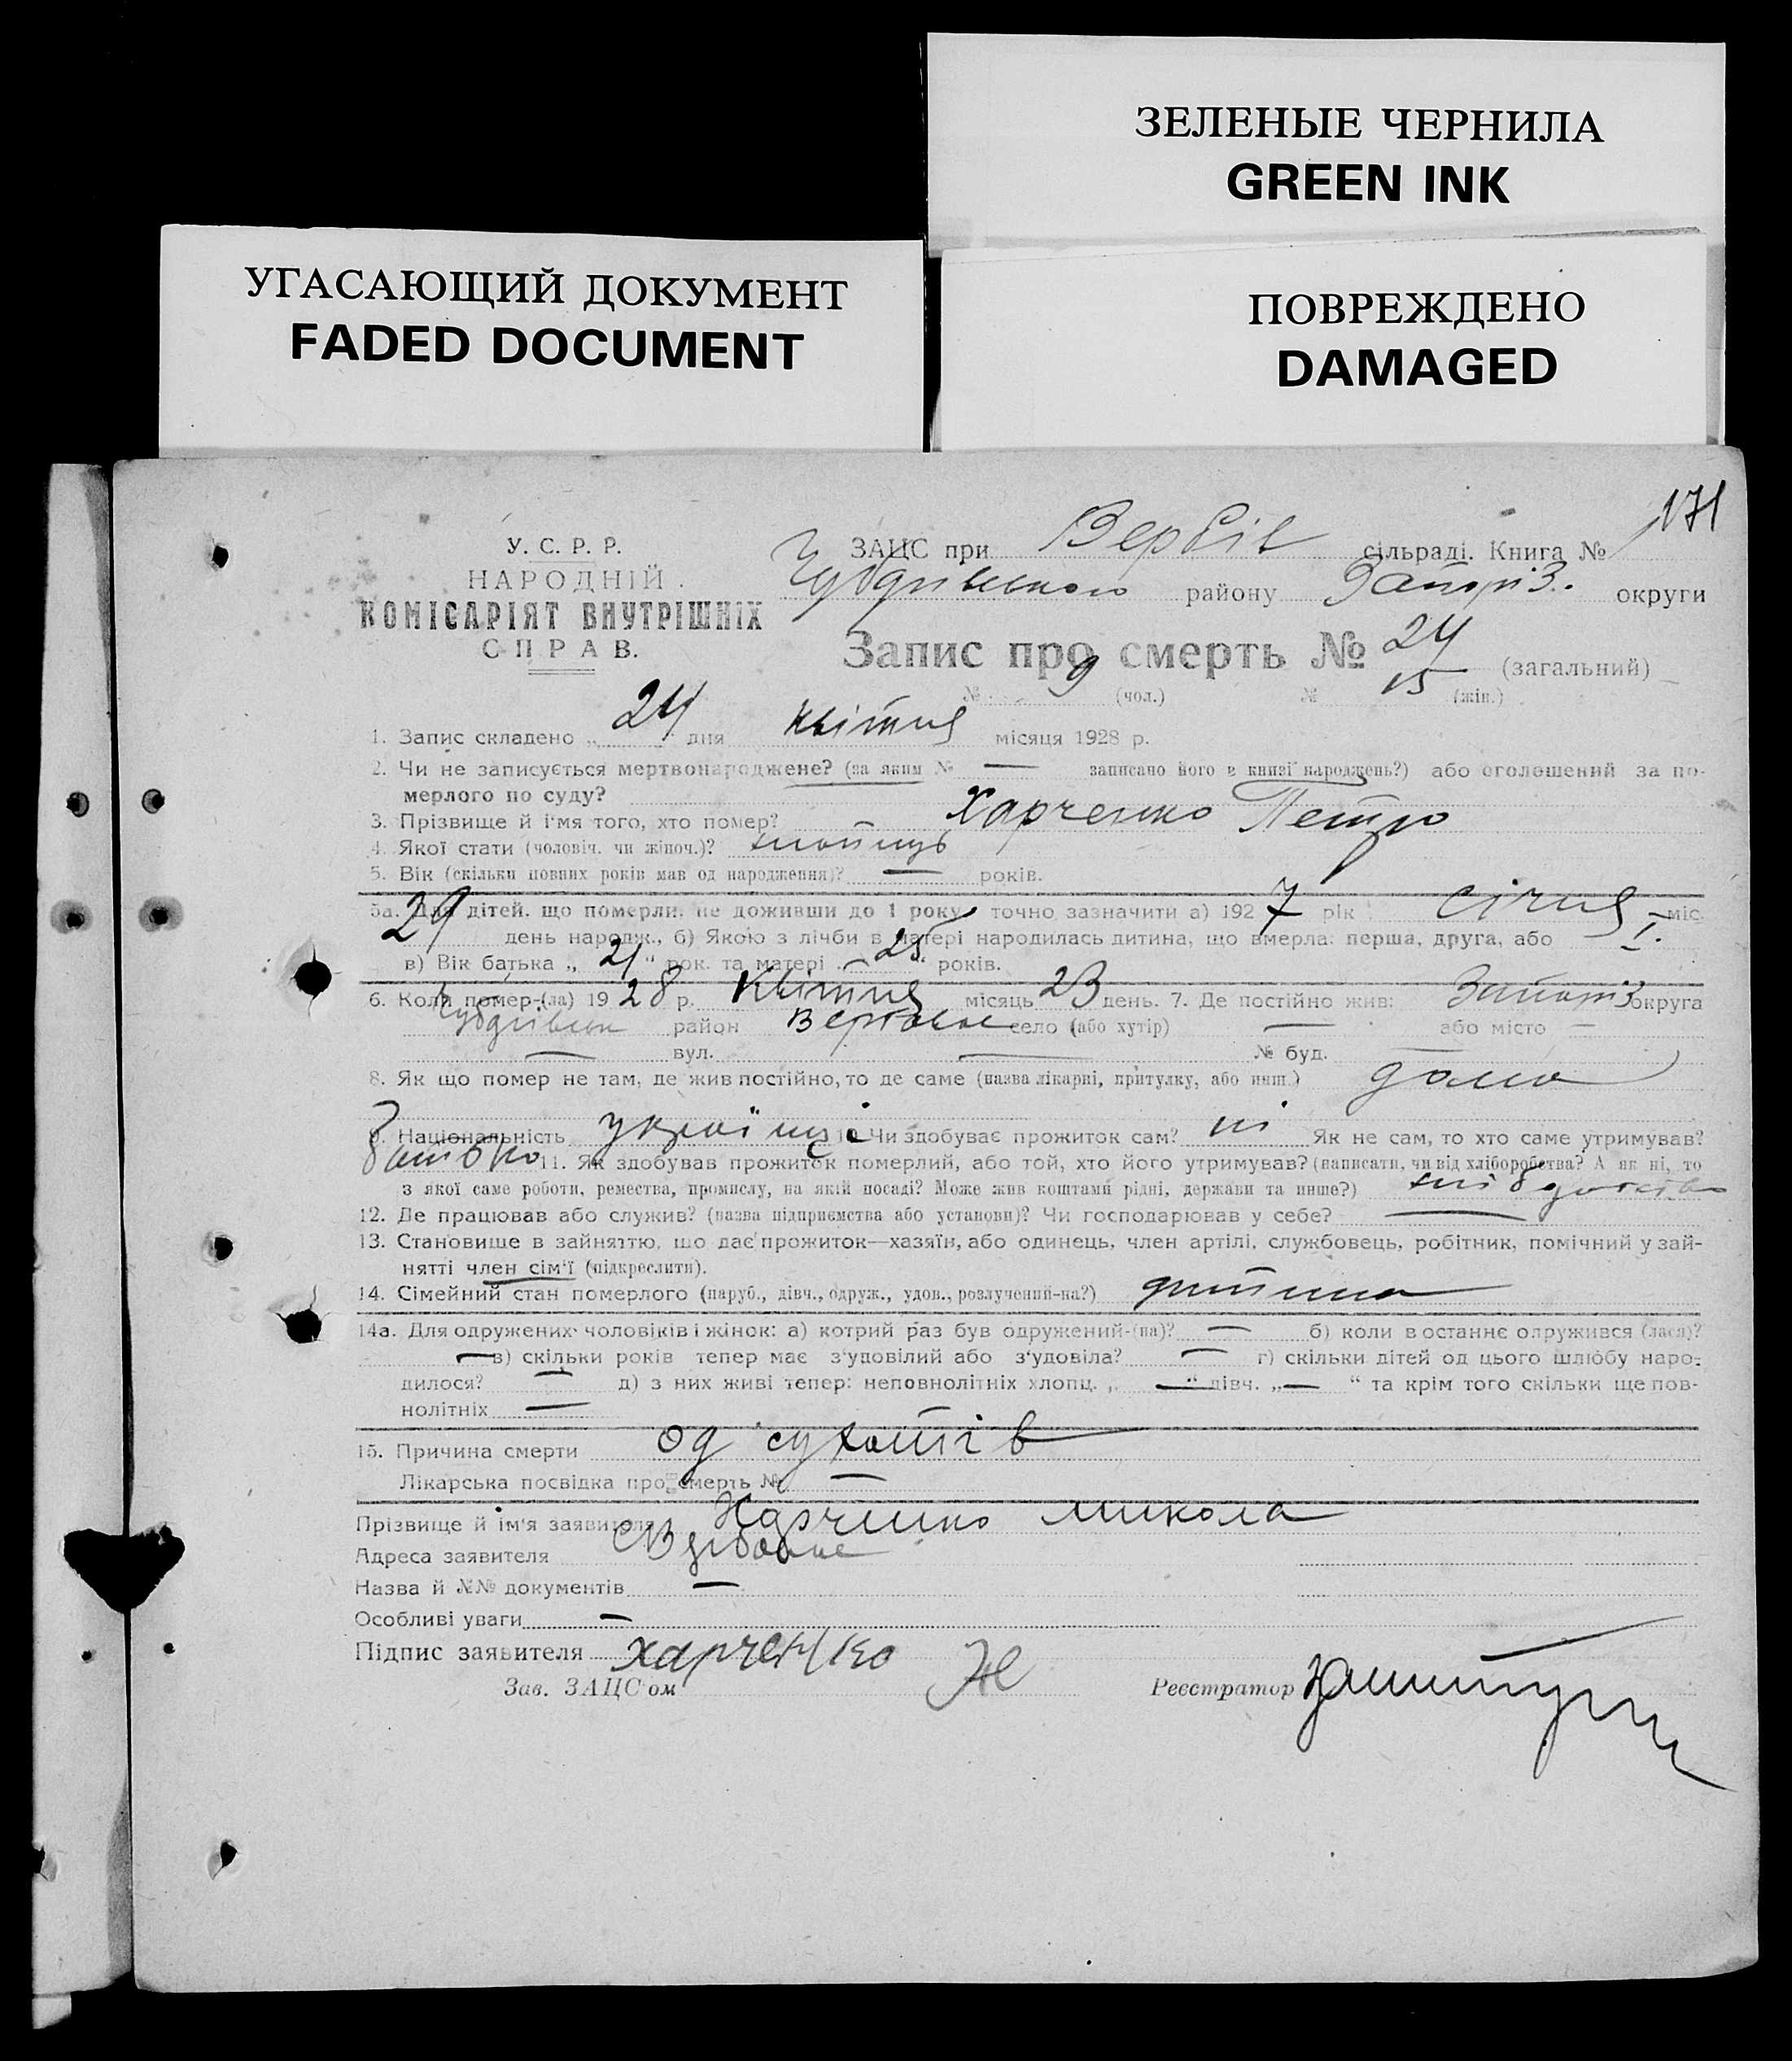 ЗЕЛЕНЫЕ ЧЕРНИЛА
GREEN INK
УГАСАЮЩИЙ ДОКУМЕНТ
FADED DOCUMENT
ПОВРЕЖДЕНО
DAMAGED
171
У. С. Р. Р.
НАРОДНІЙ
КОМІСАРІЯТ ВНУТРІШНІХ
СПРАВ.
ЗАЦС при Вербів сільраді. Книга №
району Запоріз. округи
Запис про смерть № 24 (загальний)
№ 9 (чол.) № 15 (жін.)
1. Запис складено „ 24 " дня квітня місяця 1928 р.
2. Чи не записується мертвонароджене? (за яким № — записано його в книзі народжень?) або оголошений за по-
мерлого по суду?
3. Прізвище й ім'я того, хто помер? Харченко Петро
4. Якої стати (чоловіч. чи жіноч.)?
5. Вік (скільки повних років мав од народження)? — років.
5а. Для дітей, що померли, не доживши до 1 року, точно зазначити а) 1927 рік січня міс.
29 день народж., б) Якою з лічби в матері народилась дитина, що вмерла: перша, друга, або I.
в) Вік батька „ 21 " рок. та матері „ 25 " років.
6. Коли помер-(ла) 1928 р. Квітня місяць 23 день. 7. Де постійно жив: Запоріз округа
район Вербове село (або хутір) — або місто —
— вул. — № буд. —
8. Як що помер не там, де жив постійно, то де саме (назва лікарні, притулку, або инш.) дома
9. Національність 10. Чи здобуває прожиток сам? ні Як не сам, то хто саме утримував?
батько 11. Як здобував прожиток померлий, або той, хто його утримував? (написати, чи від хліборобства? А як ні, то
з якої саме роботи, ремества, промислу, на якій посаді? Може жив коштами рідні, держави та инше?)
12. Де працював або служив? (назва підприємства або установи)? Чи господарював у себе? —
13. Становище в зайняттю, що дає прожиток—хазяїн, або одинець, член артілі, службовець, робітник, помічний у зай-
нятті член сім'ї (підкреслити).
14. Сімейний стан померлого (паруб., дівч., одруж., удов., розлучений-на?) дитина
14а. Для одружених чоловіків і жінок: а) котрий раз був одружений-(на)? — б) коли в останнє одружився (лася)?
— в) скільки років тепер має з'уповілий або з'удовіла? — г) скільки дітей од цього шлюбу наро-
дилося? — д) з них живі тепер: неповнолітніх хлопц. „ — " дівч. „ — " та крім того скільки ще пов-
нолітніх —
15. Причина смерти од сухотів
Лікарська посвідка про смерть № —
Прізвище й ім'я заявителя Харченко Микола
Адреса заявителя С Вербове
Назва й №№ документів —
Особливі уваги —
Підпис заявителя харченко
Зав. ЗАЦС'ом Реєстратор